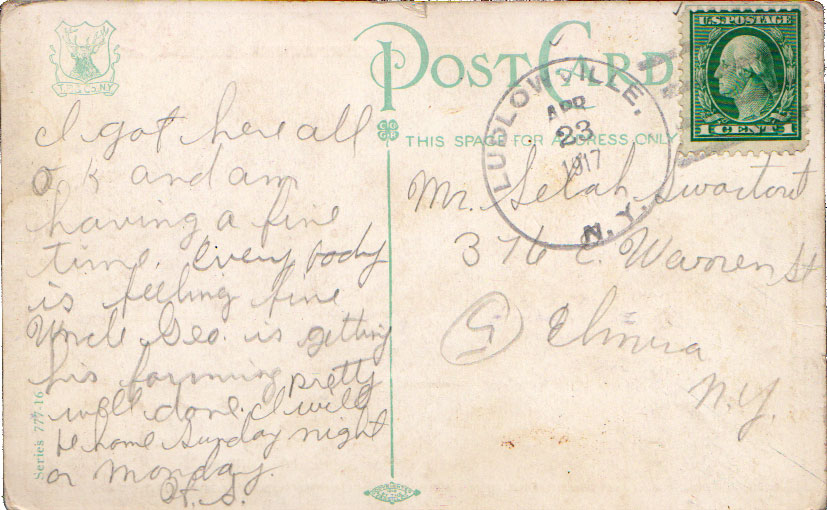 POST CARD
THIS SPACE FOR ADDRESS ONLY
U.S. POSTAGE
1 CENT 1
LUDLOWVILLE,
APR
23
1917
N.Y.
I got here all
O K and am
having a fine
time. Every body
is feeling fine
Uncle Geo. is getting
his farming pretty
well done. I will
be home Sunday night
or Monday.
Mr. Selah Swartout
316 E. Warren St
Elmira
N.Y.
Series 777-16